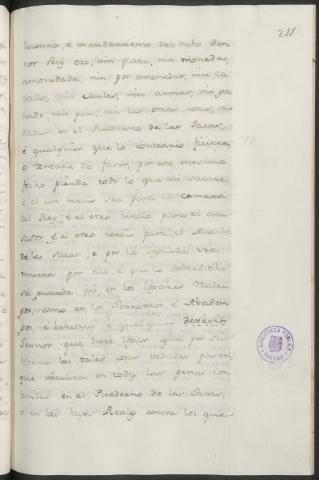 211
licencia, é mandamiento del dicho Sen
nor Rey oro, nin plata, nin moneda,
amonedada, nin por amonedar, nin ca
ballo, nin mular, nin armas, nin ga
nado, nin pan, nin las otras cosas, ve
dadas en el Quaderno de las Sacas,
é qualquier que lo contrario ficiere,
o tentare de facer, por ese mesmo
fecho pierda todo lo que asi sacare,
é el un tercio sea para la camara
del Rey, é el otro tercio para el acu
sador, é el otro tercio para el Alcalde
de las sacas, é por la segunda vez
muera por ello é que lo sobredicho
se guarde asi en los logares Realen
gos, como en los Sennorios é Abaden
gos, é behetrias é qualquier
Sennor que diere logar que por su
tierra las tales cosas vedadas pasen
que incurra en todas las penas con
tenidas en el Quaderno de las Sacas,
é en las leyes Reales contra los que
BIBLIOTECA PUBLICA
TOLEDO